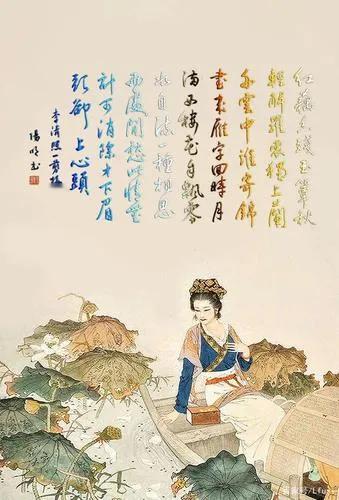 紅藕香殘玉簟秋
輕解羅裳獨上蘭
舟雲中誰寄錦
書來雁字回時月
滿西樓花自飄零
水自流一種相思
兩處閒愁此情無
計可消除才下眉
頭卻上心頭
李清照一剪梅